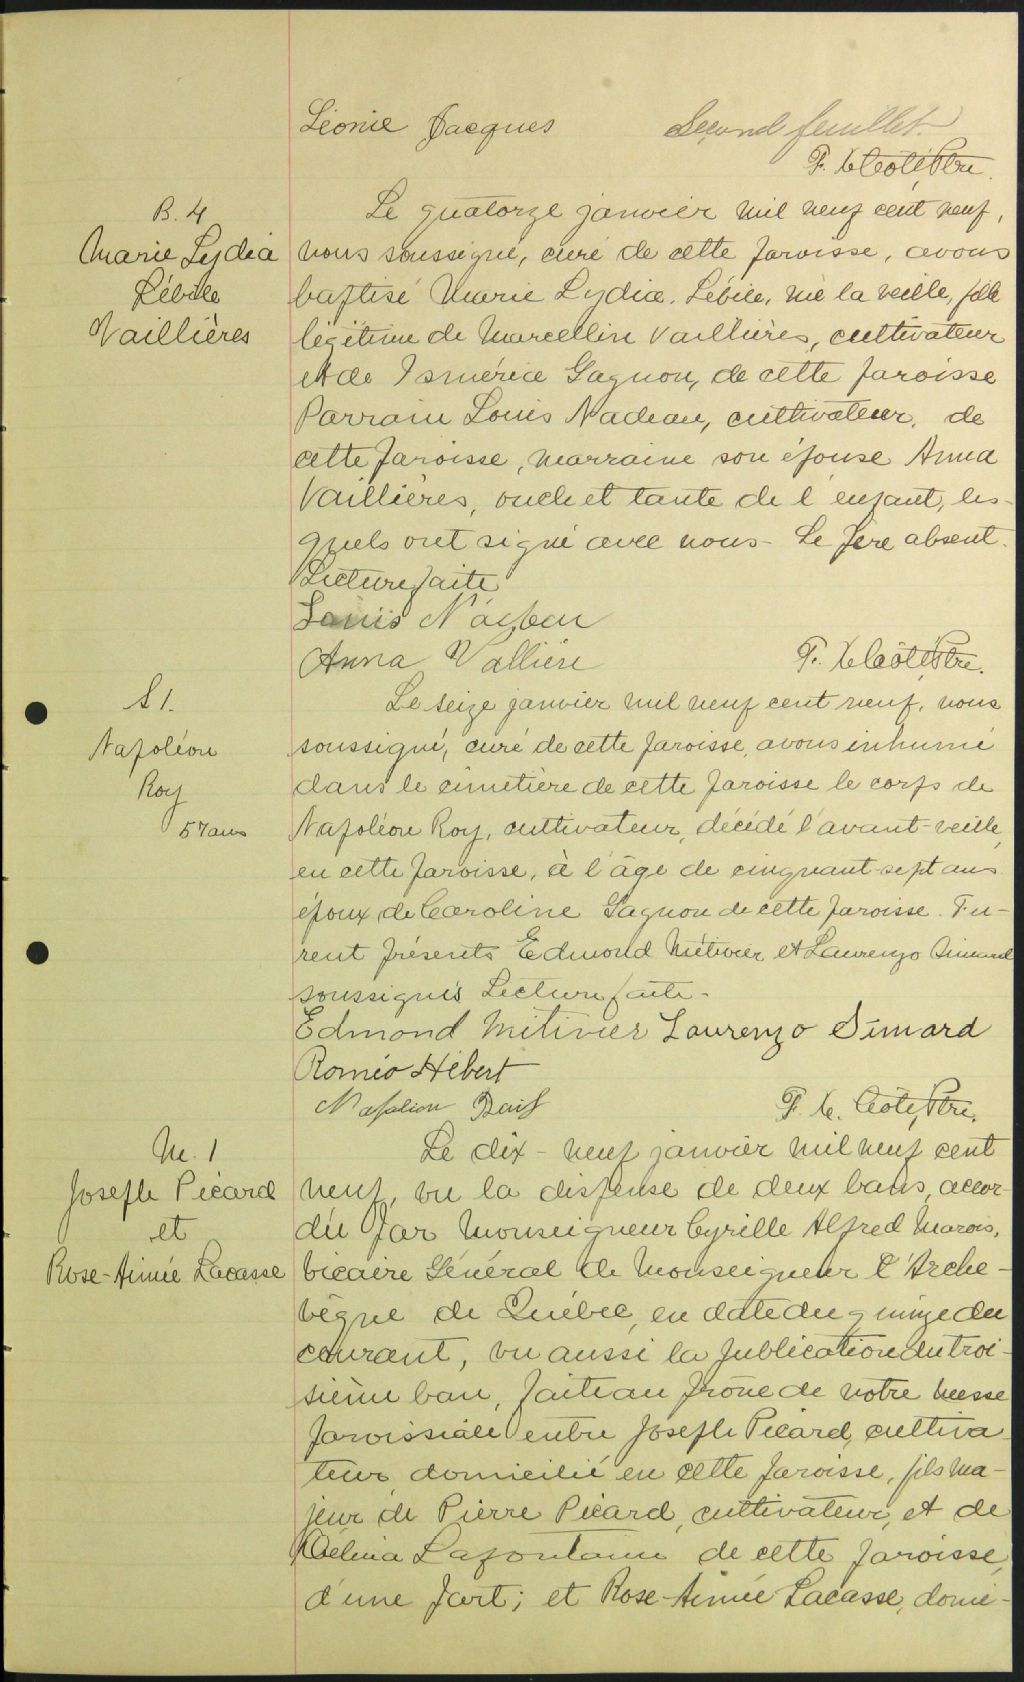 Léonie Jacques
Second feuillet.
F. X Coté, Ptre.
B. 4
Marie Lydia
Lébile
Vaillières
Le quatorze janvier mil neuf cent neuf,
nous soussigné, curé de cette paroisse, avons
baptisé Marie Lydia, Lébile, née la veille, fille
légitime de Marcellin Vaillières, cultivateur
et de Ismérie Gagnon, de cette paroisse
Parrain Louis Nadeau, cultivateur, de
cette paroisse, marraine son épouse Anna
Vaillières, oncle et tante de l'enfant, les-
quels ont signé avec nous - Le père absent.
Lecture faite
Louis
Anna Vallière
F. X Côté, Ptre.
S 1.
Napoléon
Roy
57 ans
Le seize janvier mil neuf cent neuf, nous
soussigné, curé de cette paroisse, avons inhumé
dans le cimetière de cette paroisse le corps de
Napoléon Roy, cultivateur, décédé l'avant-veille,
en cette paroisse, à l'âge de cinquant-sept ans
époux de Caroline Gagnon de cette paroisse. Fu-
rent présents Edmond Métivier et Laurenzo Simard
soussignés Lecture faite -
Edmond Mitivier Laurenzo Simard
Roméo Hébert
Napoléon
F. X. Coté, Ptre.
M. 1
Joseph Picard
et
Rose-Aimée Lacasse
Le dix-neuf janvier mil neuf cent
neuf, vu la dispense de deux bans, accor-
dée par Monseigneur Cyrille Alfred Marois,
Vicaire Général de Monseigneur l'Arche-
vêque de Québec, en date du quinze du
courant, vu aussi la publication du troi-
sième ban, faite au prône de notre messe
paroissiale entre Joseph Picard, cultiva-
teur domicilié en cette paroisse, fils ma-
jeur de Pierre Picard, cultivateur, et de
Délina Lafontaine de cette paroisse,
d'une part; et Rose-Aimée Lacasse, domi-